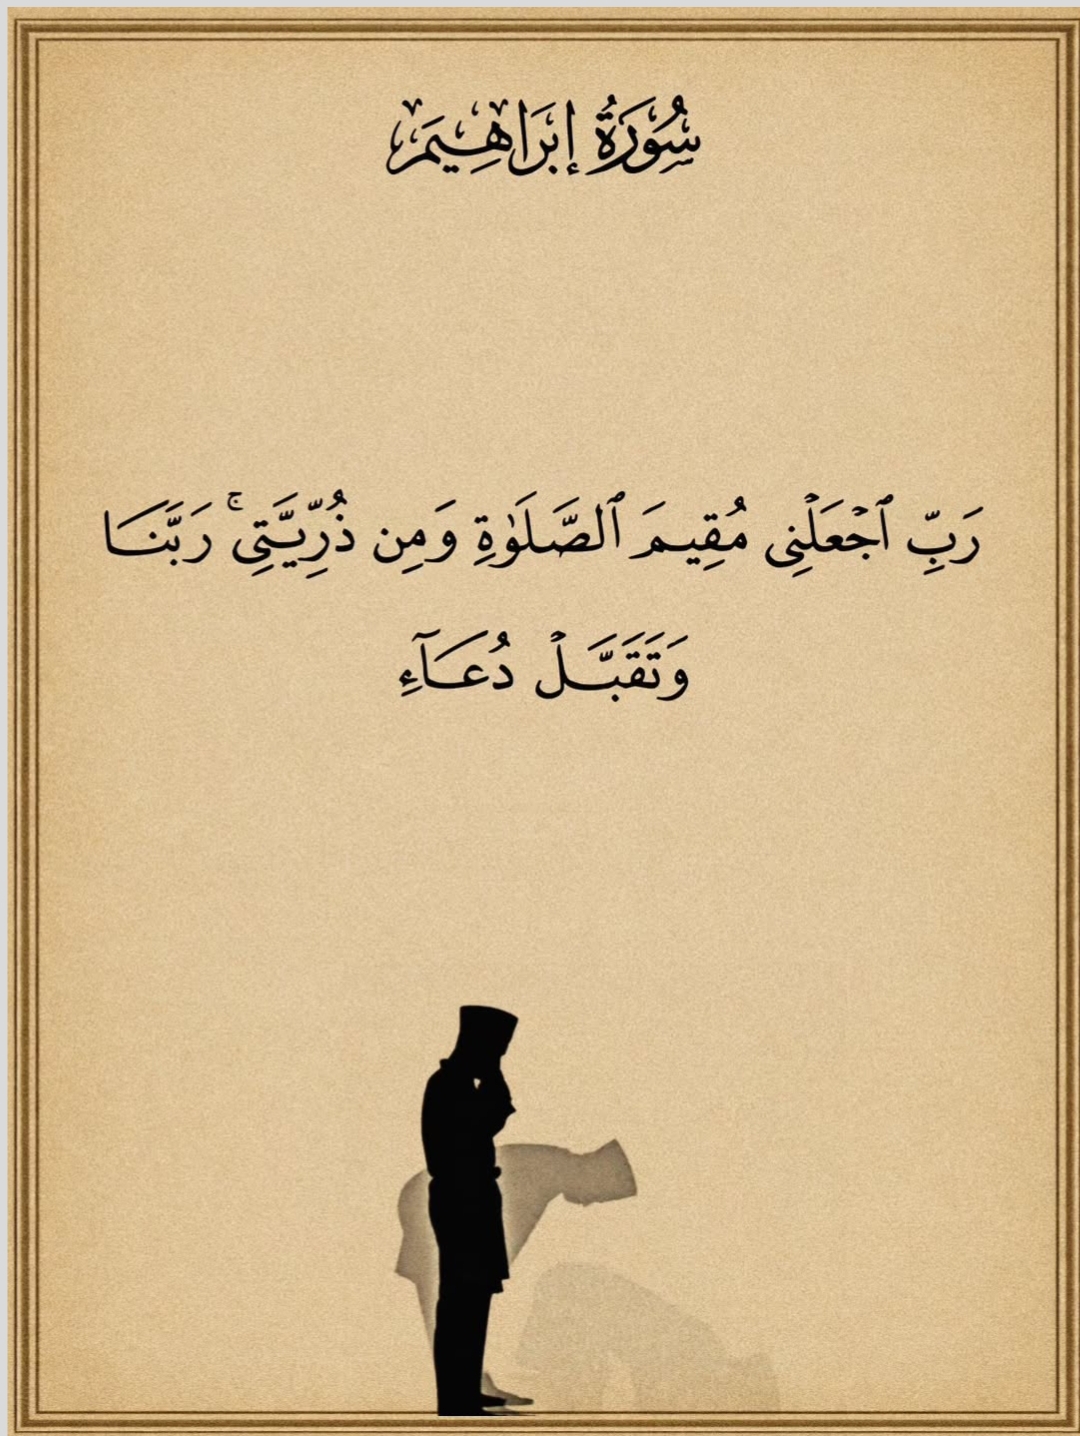 سُورَةُ إِبْرَاهِيمَ
رَبِّ ٱجۡعَلۡنِى مُقِيمَ ٱلصَّلَوٰةِ وَمِن ذُرِّيَّتِىۚ رَبَّنَا
وَتَقَبَّلۡ دُعَآءِ